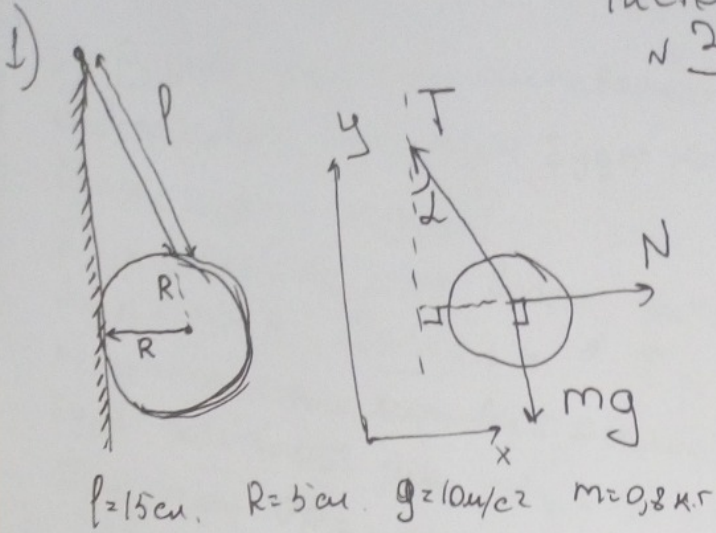 1)
N 3
l
R
R
y
T
α
N
mg
x
l=15см. R=5см g=10м/с² m=0,8 кг